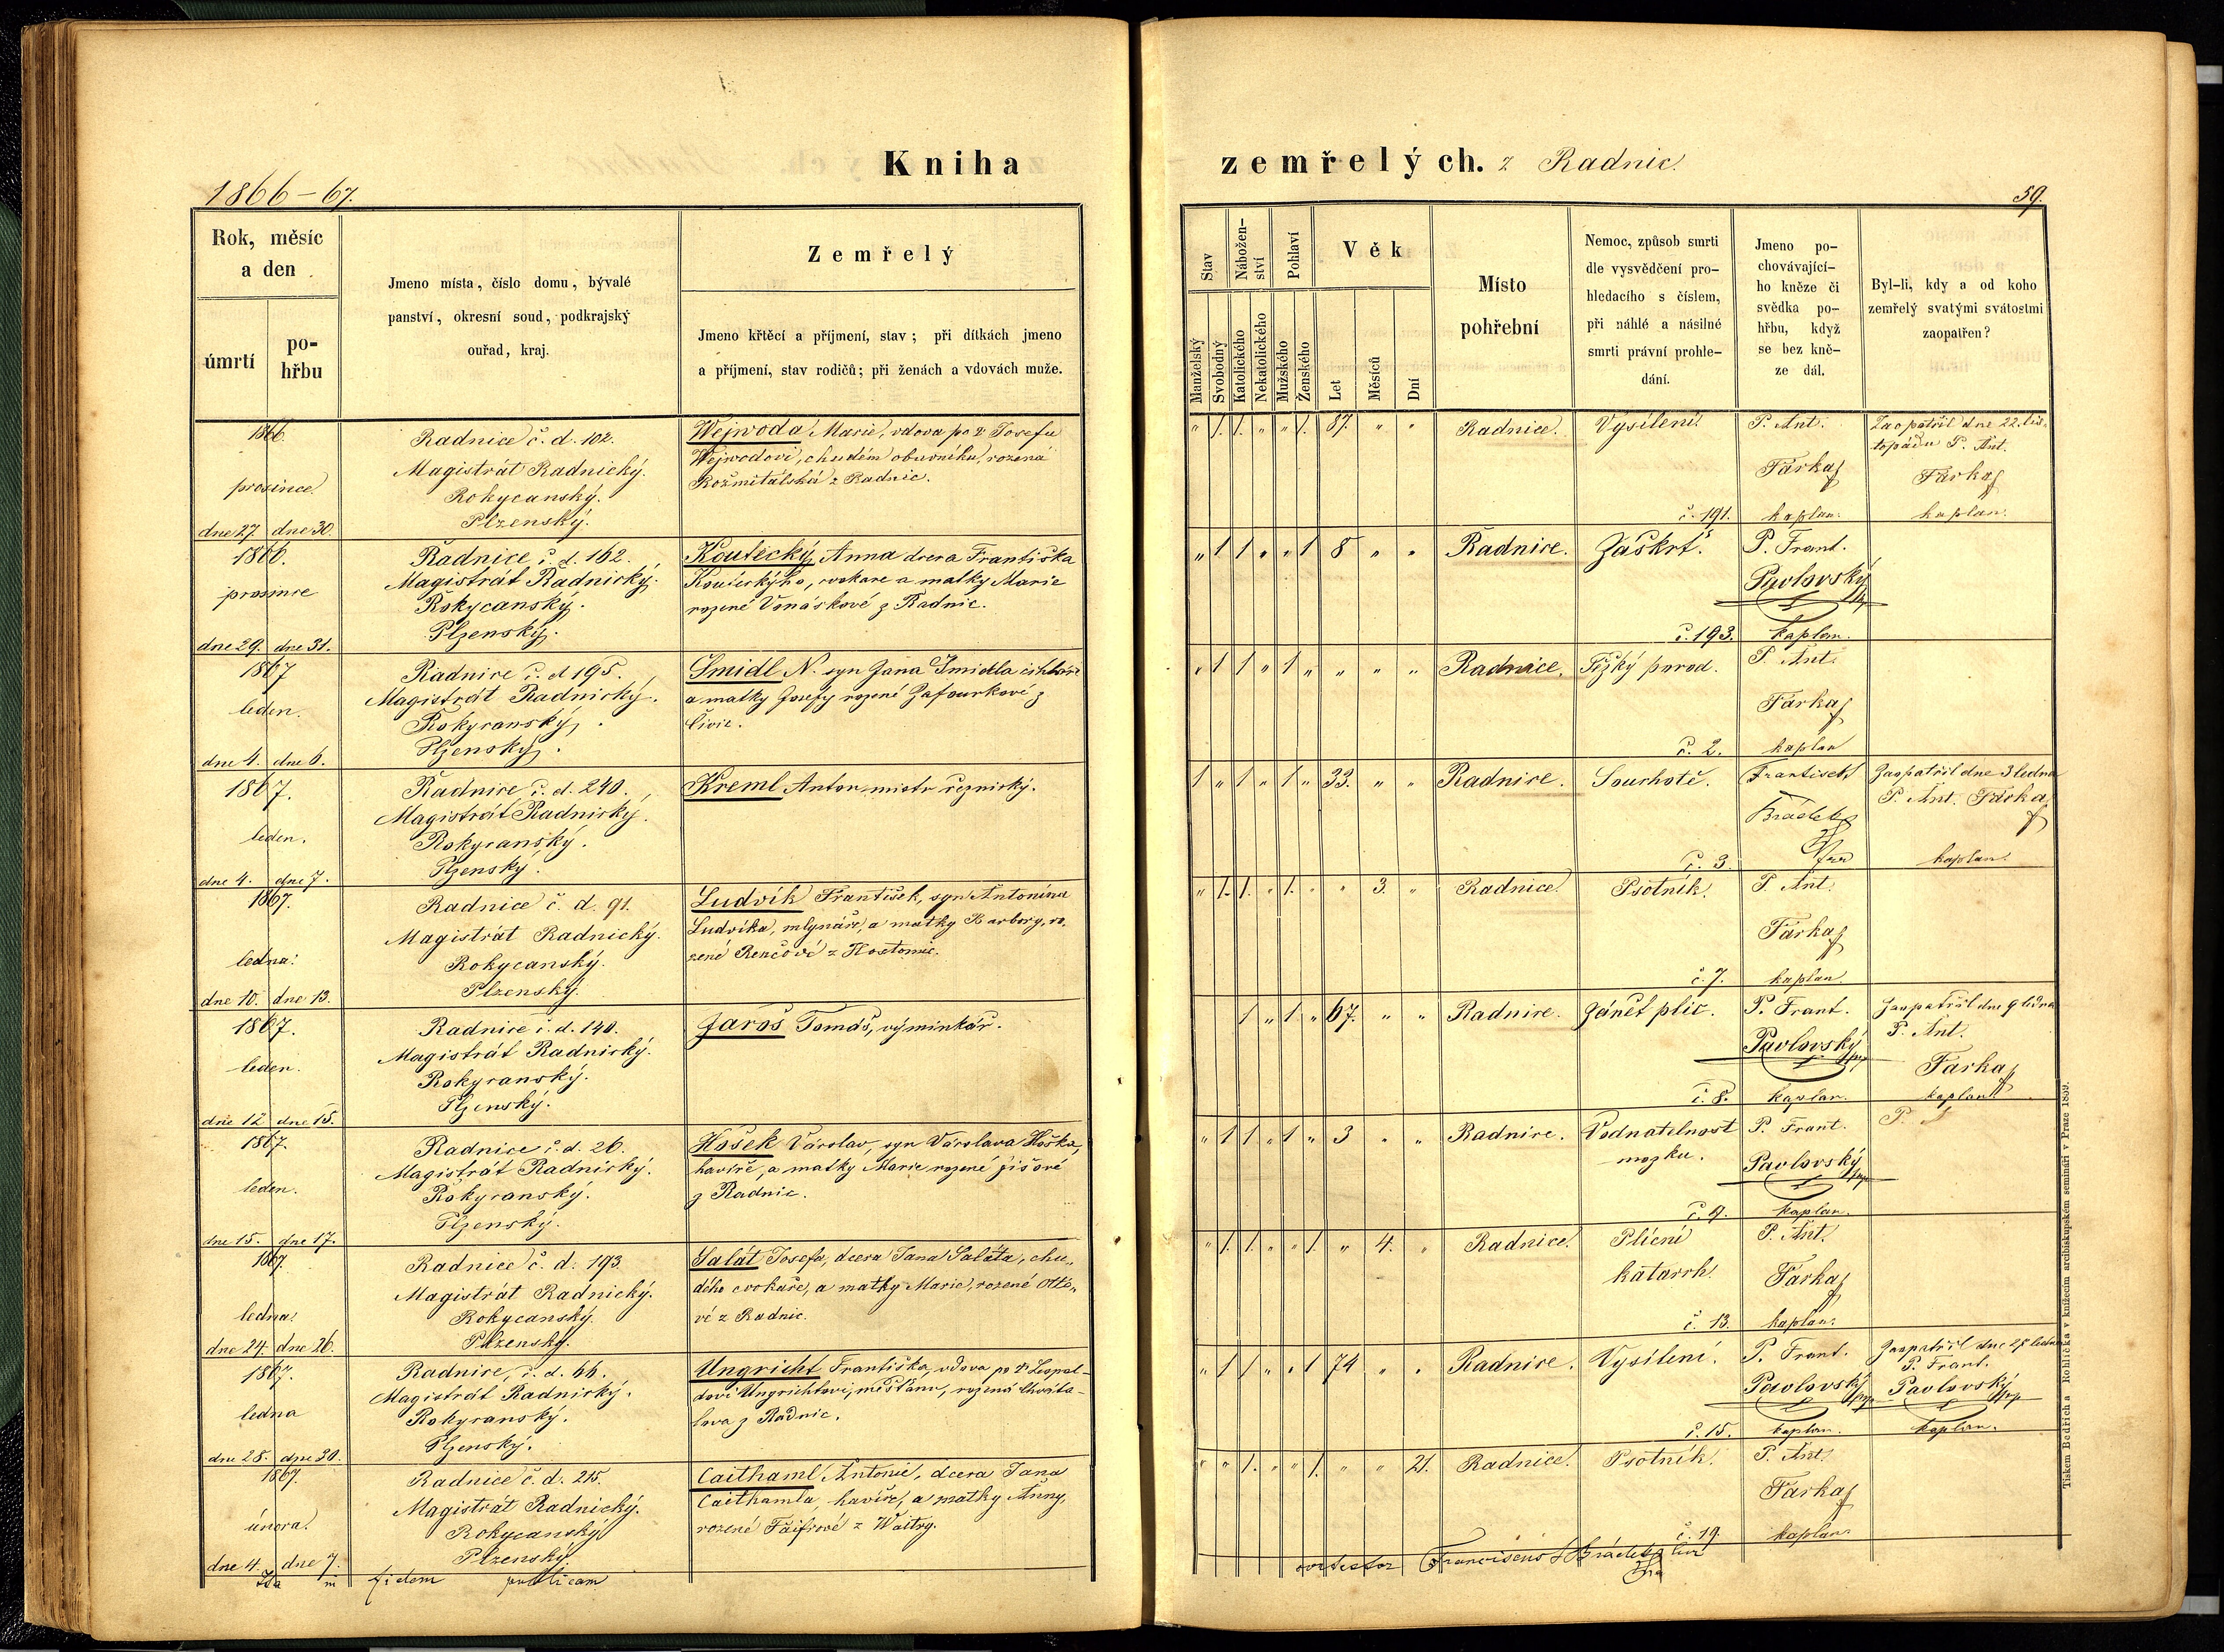 Kniha
zemřelých. z Radnic.
1866–67.
59.
Rok, měsíc
a den
úmrtí
po-
hřbu
Jmeno místa, číslo domu, bývalé
panství, okresní soud, podkrajský
ouřad, kraj.
Zemřelý
Jmeno křtěcí a příjmení, stav; při dítkách jmeno
a příjmení, stav rodičů; při ženách a vdovách muže.
Stav
Nábožen-
ství
Pohlaví
Věk
Manželský
Svobodný
Katolického
Nekatolického
Mužského
Ženského
Let
Měsíců
Dní
Místo
pohřební
Nemoc, způsob smrti
dle vysvědčení pro-
hledacího s číslem,
při náhlé a násilné
smrti právní prohle-
dání.
Jmeno po-
chovávající-
ho kněze či
svědka po-
hřbu, když
se bez kně-
ze dál.
Byl-li, kdy a od koho
zemřelý svatými svátostmi
zaopatřen?
1866.
prosince
dne 27. dne 30.
Radnice č. d. 102.
Magistrát Radnický.
Rokycanský.
Plzenský.
Wejwoda Marie, vdova po † Josefu
Wejwodovi, chudém obuvníku, rozená
Rožmitálská z Radnic.
" 1. 1. " " 1. 87. " "
Radnice.
Vysílení.
č. 191.
P. Ant.
Farka
kaplan.
Zaopatřil dne 22. lis-
topadu P. Ant.
Farka
kaplan.
1866.
prosince
dne 29. dne 31.
Radnice č. d. 162.
Magistrát Radnický.
Rokycanský.
Plzenský.
Koutecký Anna dcera Františka
Kouteckýho, cvokaře a matky Marie
rozené Vonáskové z Radnic.
" 1 1 " " 1 8 " "
Radnice.
Záškrt.
č. 193.
P. Frant.
Pavlovský
kaplan.
1867
leden.
dne 4. dne 6.
Radnice č. d. 195.
Magistrát Radnický.
Rokycanský.
Plzenský.
Šmidl N. syn Jana Šmidla cihláře
a matky Josefy rozené Zafourkové z
" 1 1 " 1 " " " "
Radnice.
Těžký porod.
č. 2.
P. Ant.
Farka
kaplan
1867.
leden.
dne 4. dne 7.
Radnice č. d. 240.
Magistrát Radnický.
Rokycanský.
Plzenský.
Kreml Anton, mistr řeznický.
1 " 1 " 1 " 33. " "
Radnice.
Souchotě.
č. 3.
František
Brádek
Zaopatřil dne 3 ledna
P. Ant. Farka
kaplan.
1867.
ledna.
dne 10. dne 13.
Radnice č. d. 91.
Magistrát Radnický.
Rokycanský.
Plzenský.
Ludvík František, syn Antonína
Ludvíka, mlynáře, a matky Barbory, ro-
zené Renčové z Hostomic.
" 1. 1. " 1. " " 3. "
Radnice.
Psotník.
č. 7.
P. Ant.
Farka
kaplan.
1867.
leden.
dne 12 dne 15.
Radnice č. d. 140.
Magistrát Radnický.
Rokycanský.
Plzenský.
Jaroš Tomáš, výminkář.
1 " 1 " 67. " "
Radnice.
Zánět plic.
č. 8.
P. Frant.
Pavlovský
kaplan.
Zaopatřil dne 9 ledna
P. Ant.
Farka
kaplan
1867.
leden.
dne 15. dne 17.
Radnice č. d. 26.
Magistrát Radnický.
Rokycanský.
Plzenský.
Hošek Václav, syn Václava Hoška,
havíře, a matky Marie rozené Jišové
z Radnic.
" 1 1 " 1 " 3 " "
Radnice.
Vodnatelnost
mozku.
č. 9.
P. Frant.
Pavlovský
kaplan.
P.
1867.
ledna.
dne 24. dne 26.
Radnice č. d. 193.
Magistrát Radnický.
Rokycanský.
Plzenský.
Salát Josefa, dcera Jana Saláta, chu-
dého cvokaře, a matky Marie, rozené Otto-
vé z Radnic.
" 1. 1. " " 1. " 4. "
Radnice.
Plicní
katarrh.
č. 13.
P. Ant.
Farka
kaplan.
1867.
ledna
dne 28. dne 30.
Radnice, č. d. 66.
Magistrát Radnický.
Rokycanský.
Plzenský.
Ungricht Františka, vdova po † Leopol-
dovi Ungrichtovi, měšťanu, rozená
z Radnic.
" 1 1 " " 1 74 " "
Radnice.
Vysílení.
č. 15.
P. Frant.
Pavlovský
kaplan.
Zaopatřil dne 28 ledna
P. Frant.
Pavlovský
kaplan.
1867.
února.
dne 4. dne 7.
Radnice č. d. 215.
Magistrát Radnický.
Rokycanský
Plzenský.
Caithaml Antonie, dcera Jana
Caithamla, havíře, a matky Anny,
rozené Faifrové z
" " 1. " " 1. " " 21.
Radnice.
Psotník.
č. 19.
P. Ant.
Farka
kaplan.
Ita in fidem publicam
Franciscus Brádek
Tiskem Bedřicha Rohlíčka v knížecím arcibiskupském semináři v Praze 1859.